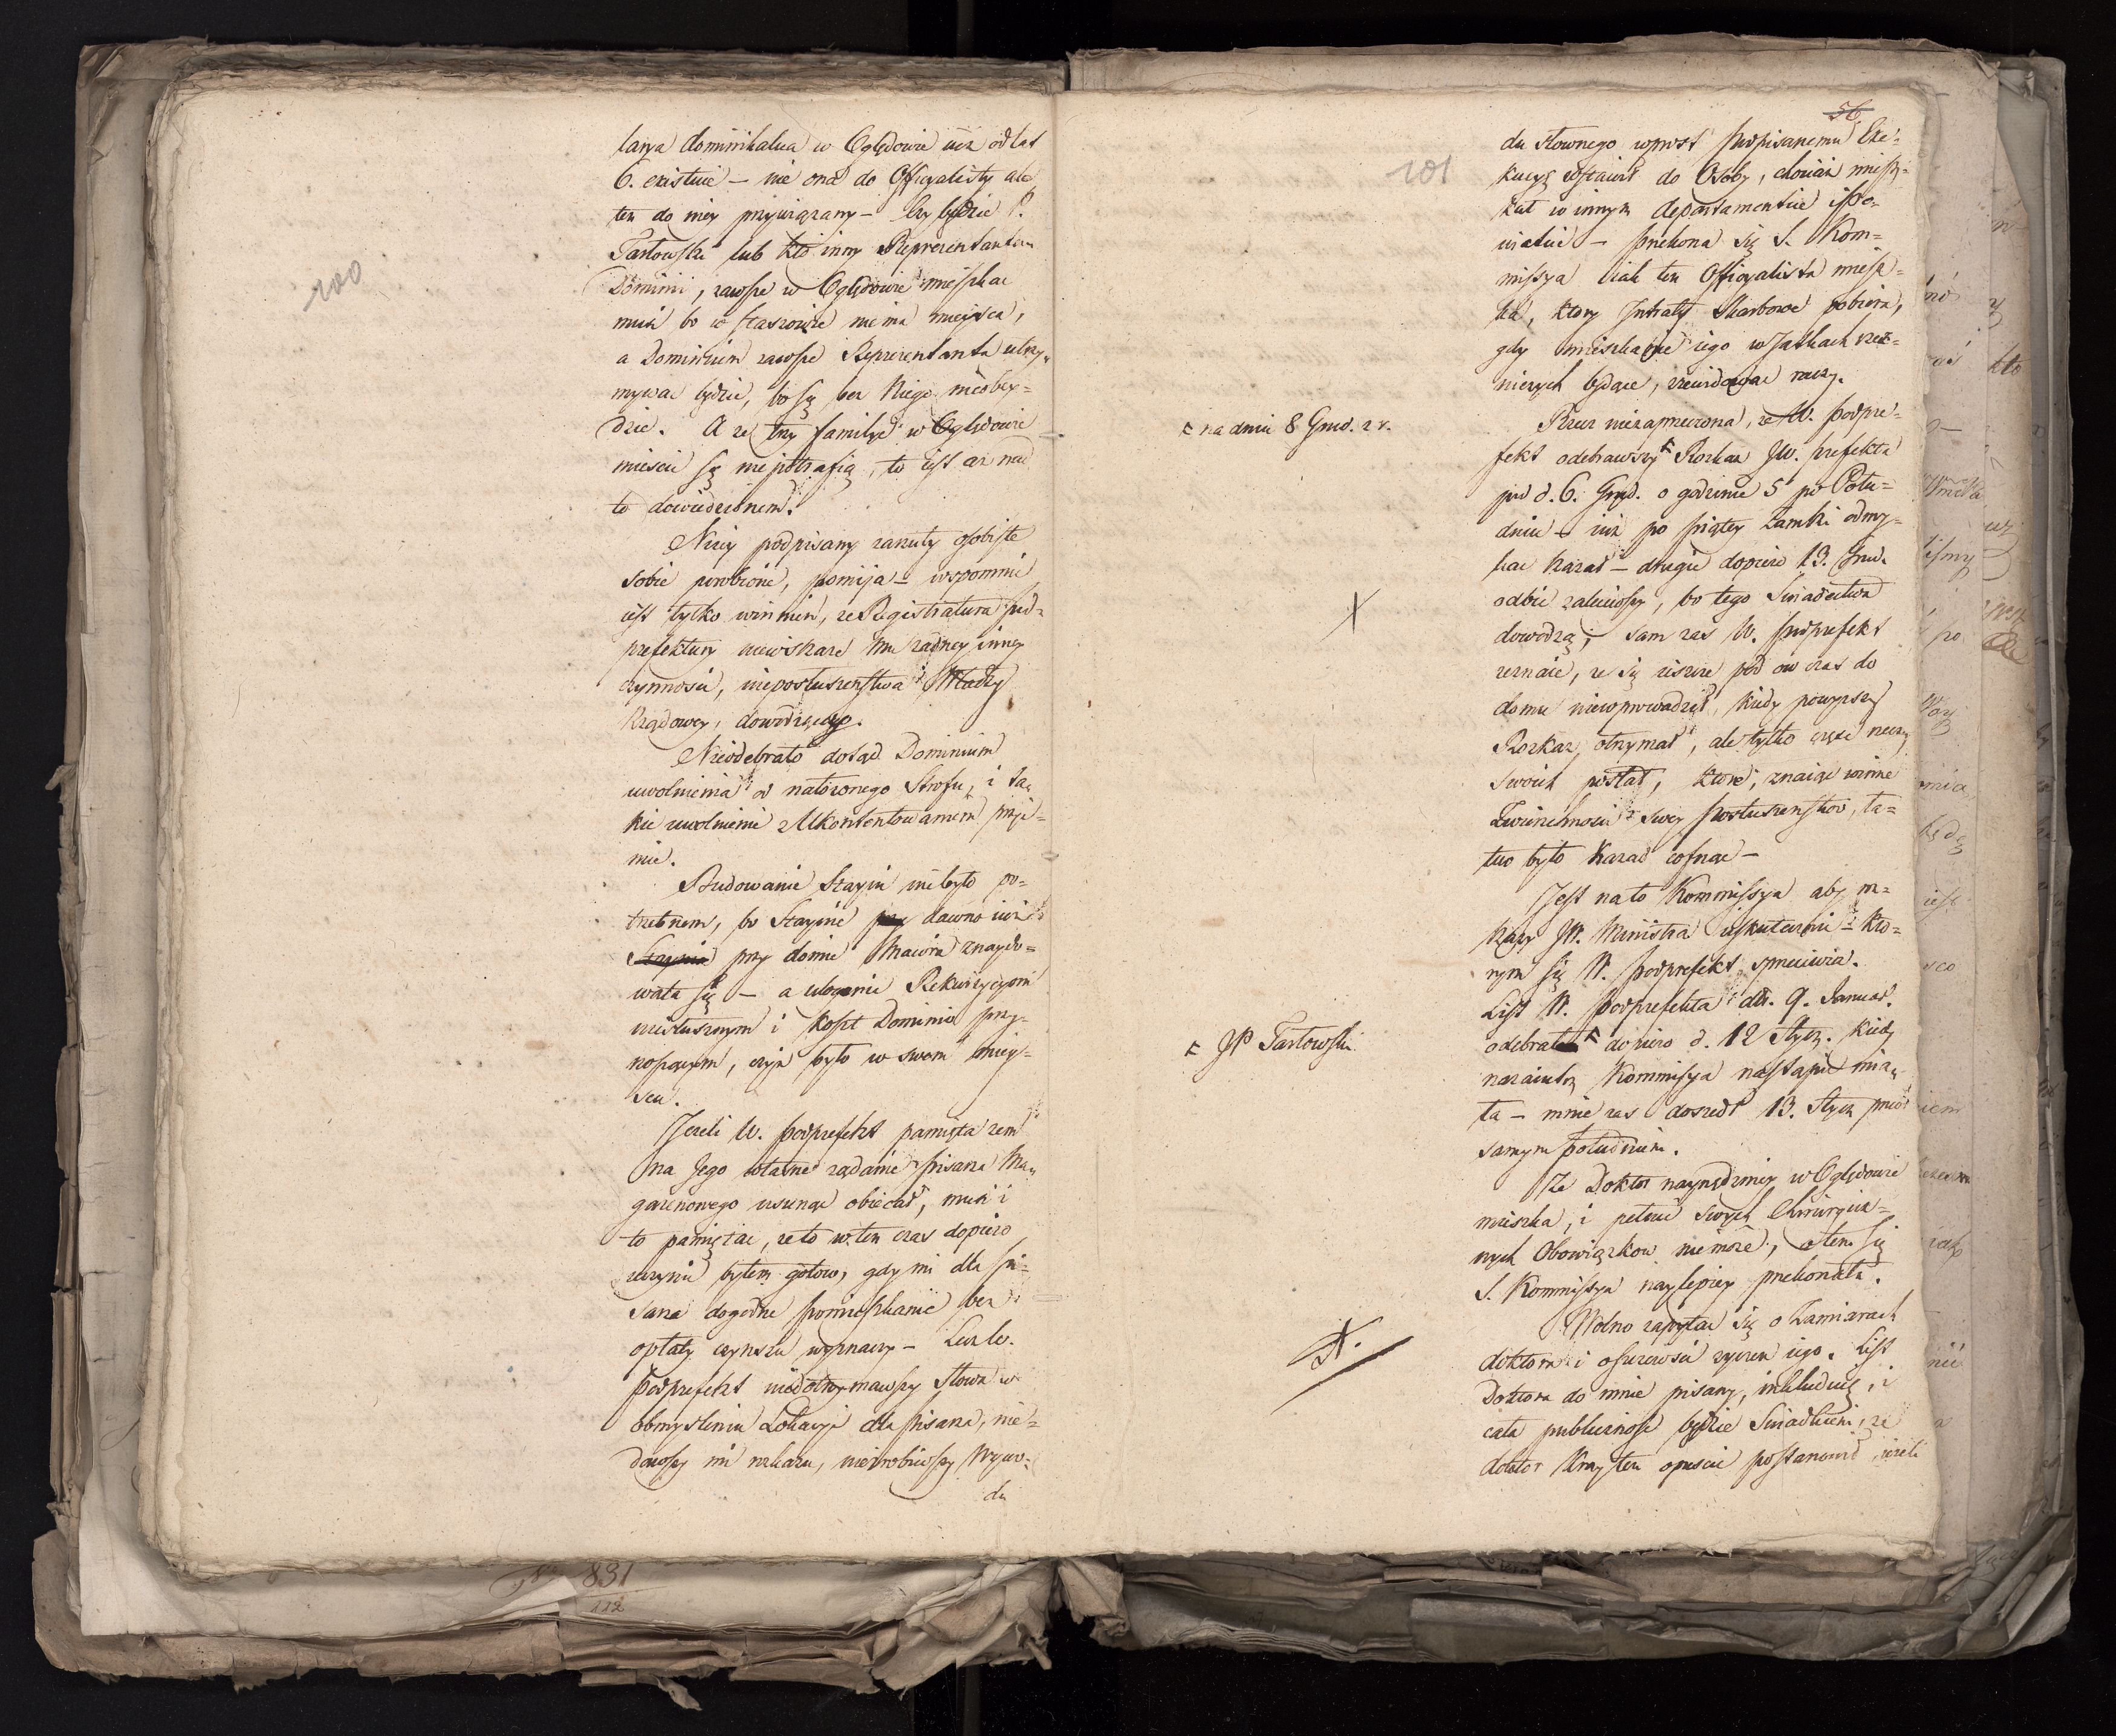 100
larya dominikalna w Oględowie iuż od lat
6. existuie – nie ona do Officyalisty ale
ten do niey przywiązany – Czy będzie P.
Tarłowski lub kto inny Reprezentantem
Dominii, zawsze w Oględowie mieszkac
musi bo w Staszowie niema mieysca,
a Dominium zawsze Reprezentanta utrzy„
mywac będzie, bo się bez niego nieobey=
dzie. A że trzy familye w Oględowie
miescic się niepotrafią, to iest az nad
to dowiedzionem.
Niżey podpisany zarzuty osobiste
sobie porobione, pomija – wspomniec
iest tylko winien, że Registratura pod=
prefektury niewskaże mu żadney inney
czynności, nieposłuszeństwa Władzy
Rządowey, dowodzącey.
Nieodebrało dotąd Dominium
uwolnienia od nałożonego Strofu, i ta„
kie uwolnienie z Ukontentowaniem przyi=
mie.
Budowanie Stayni niebyło po=
trzebnem, bo Staynie przy dawno iuż
Staynia przy domie Maiora znaydo=
wała się – a uleganie Rekwizycyom
niesłusznym i koszt Dominio przy=
noszącym, czyż było w swem miey=
scu.
Jeżeli W. podprefekt pamięta żem
na Jego własne żądanie pisarza Ma„
gazynowego usunąc obiecał, musi i
to pamiętac, że to w ten czas dopiero
uczynic byłem gotow, gdy mi dla pi=
sarza dogodne pomieszkanie bez
opłaty czynszu wyznaczy – Lecz W.
podprefekt niedotrzymawszy słowa w
obmysleniu Lokacyi dla pisarza, nie=
dawszy mi nakazu, niezrobiwszy Wywo=
du
56
101
du słownego wprost podpisanemu Exe=
kucyę wstawił do Osoby, chociaż miesz=
kał w innym departamencie i po=
wiatcie – przekona się S. Kom=
missya iak ten Officyalista miesz=
ka, ktory Intraty Skarbowe pobiera,
gdy mieszkanie iego w Jatkach rzez=
niczych będące, zrewidować raczy.
Rzecz niezaprzeczona, że W. podpre=
fekt odebrawszy F Rozkaz JW. prefekta
F na dniu 8 Grud. z r.
pod d. 6. Grud. o godzinie 5 po Połu=
dniu – iuż po piątey Zamki odmy=
kac kazał – drugie dopiero 13. Grud.
odbic zaleciwszy, bo tego Swiadectwa
X
dowodzą; sam zas W. podprefekt
zeznaie, że się ieszcze pod ow czas do
domu niewprowadził, kiedy powyższy
Rozkaz otrzymał, ale tylko część rzeczy
swoich posłał, ktore, znaiąc winne
Zwierzchności swey posłuszeństwo, ła=
two było kazac cofnąc –
Jest na to Kommissya aby roz=
kazy JW. Ministra uskuteczni – kto=
rym się W. podprefekt sprzeciwia.
List W. podprefekta dtt. 9. Januar.
odebrał F dopiero d. 12 Stycz. kiedy
F JP Tarłowski
nazaiutrz Kommissya nastąpic mia„
ła – mnie zas doszedł 13. Stycz przed
samym południem.
Że Doktor nayrządzniey w Oględowie
mieszka, i pełnic swych Chirurgicz=
nych Obowiązkow niemoże, o tem się
S. Kommissya naylepiey przekonała.
Wolno zapytac się o Zamiarach
X.
doktora i o szczerosci życzen iego. List
Doktora do mnie pisany, inkluduię, i
cała publicznosc będzie Swiadkiem, że
doktor Kray ten opuscic postanowił, ieżeli
831
112